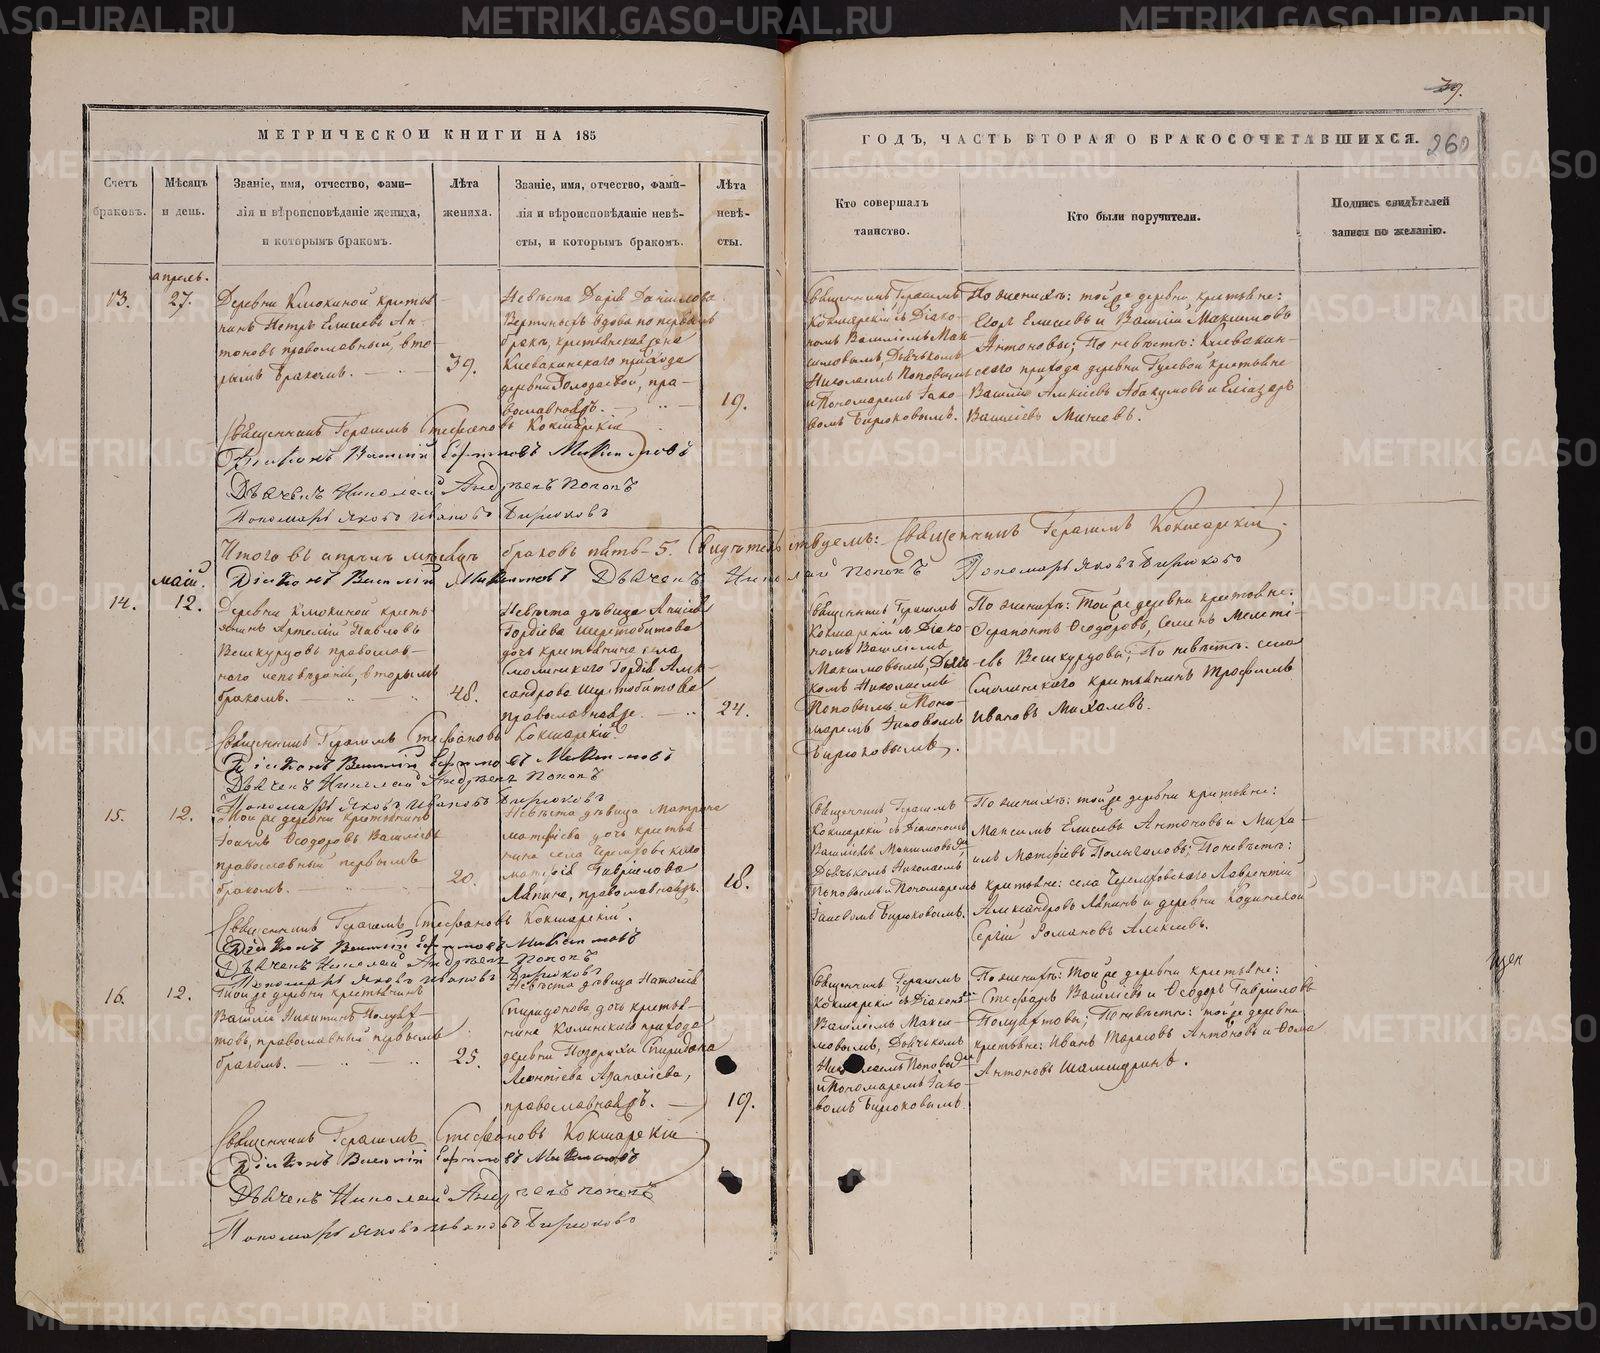 39.
260
МЕТРИЧЕСКОЙ КНИГИ НА 185
ГОДЪ, ЧАСТЬ ВТОРАЯ О БРАКОСОЧЕТАВШИХСЯ.
Счетъ
браковъ.
Мѣсяцъ
и день.
Званіе, имя, отчество, фами-
лія и вѣроисповѣданіе жениха,
и которымъ бракомъ.
Лѣта
жениха.
Званіе, имя, отчество, фами-
лія и вѣроисповѣданіе невѣ-
сты, и которымъ бракомъ.
Лѣта
невѣ-
сты.
Кто совершалъ
таинство.
Кто были поручители.
Подпись свидѣтелей
записи по желанію.
апрель.
13.
27.
Деревни Клюкиной кресть
нинъ Петръ Елисеевъ Ан-
тоновъ православный, вто
рымъ бракомъ.
39.
Невѣста Дарія Данилова
вдова по первомъ
бракѣ, крестьянская жена
прихода
деревни пра-
вославная.
19.
Священникъ Герасимъ
Кокшарскій съ Діако-
номъ Василіемъ Мак-
симовымъ, Дьячкомъ
Николаемъ Поповымъ
и Пономаремъ Іако-
вомъ Бирюковымъ.
По женихѣ: той же деревни, крестьяне:
Егоръ Елисеевъ и Василій Максимовъ
Антоновы; По невѣстѣ:
прихода деревни крестьяне
Василій Алексѣевъ Абакумовъ и Елеазаръ
Васильевъ Минеевъ.
Священникъ Герасимъ Стефановъ Кокшарскій
Діаконъ Василій Максимовъ
Дьячекъ Николай Андреевъ Поповъ
Пономарь Яковъ Ивановъ Бирюковъ
Итого въ апрѣлѣ мѣсяцѣ браковъ пять – 5. Свидѣтельствуемъ: Священникъ Герасимъ Кокшарскій.
Діаконъ Василій Максимовъ Дьячекъ Николай Поповъ Пономарь Яковъ Бирюковъ
май.
14.
12.
Деревни Клюкиной кресть-
янинъ Артемій Павловъ
православ-
наго исповѣданія, вторымъ
бракомъ.
48.
Невѣста дѣвица Анисія
Гордіева Шерстобитова
дочь крестьянина села
Смолинскаго Гордія Алек-
сандрова Шерстобитова
православная.
24.
Священникъ Герасимъ
Кокшарскій съ Діако-
номъ Василіемъ
Максимовымъ, Дьяч-
комъ Николаемъ
Поповымъ и Поно-
маремъ Іаковомъ
Бирюковымъ.
По женихѣ: Той же деревни крестьяне:
Ѳерапонтъ Ѳеодоровъ, Семенъ Мелеті-
евъ По невѣстѣ: села
Смолинскаго крестьянинъ Трофимъ
Ивановъ Михалевъ.
Священникъ Герасимъ Стефановъ Кокшарскій
Діаконъ Василій Максимовъ
Дьячекъ Николай Андреевъ Поповъ
Пономарь Яковъ Ивановъ Бирюковъ
15.
12.
Той же деревни крестьянинъ
Іоаннъ Ѳеодоровъ Васильевъ
православный первымъ
бракомъ.
20.
Невѣста дѣвица Матрона
Матфіева дочь крестья
нина села
Матфія Гавріилова
Ляпина, православная.
18.
Священникъ Герасимъ
Кокшарскій съ Діакономъ
Василіемъ Максимовымъ
Дьячкомъ Николаемъ
Поповымъ и Пономаремъ
Іаковомъ Бирюковымъ.
По женихѣ: той же деревни крестьяне:
Максимъ Елисеевъ Антоновъ и Миха-
илъ Матфіевъ По невѣстѣ:
крестьяне: села Лаврентій
Александровъ Ляпинъ и деревни
Сергій Романовъ Алексѣевъ.
Священникъ Герасимъ Стефановъ Кокшарскій.
Діаконъ Василій Максимовъ
Дьячекъ Николай Андреевъ Поповъ
Пономарь Яковъ Ивановъ Бирюковъ
16.
12.
Той же деревни крестьянинъ
Василій Никитинъ Полуях-
товъ, православный первымъ
бракомъ.
25.
Невѣста дѣвица Наталія
Спиридонова, дочь крестья-
нина прихода
деревни Спиридона
Леонтіева
православная.
19.
Священникъ Герасимъ
Кокшарскій съ Діакономъ
Василіемъ Макси-
мовымъ, Дьячкомъ
Николаемъ Поповымъ
и Пономаремъ Іако-
вомъ Бирюковымъ
По женихѣ: Той же деревни крестьяне:
Стефанъ Васильевъ и Ѳеодоръ Гавріиловъ
Полуяхтовы; По невѣстѣ: той же деревни
крестьяне: Иванъ Тарасовъ Антоновъ и Ѳома
Антоновъ
Священникъ Герасимъ Стефановъ Кокшарскій
Діаконъ Василій Максимовъ
Дьячекъ Николай Андреевъ Поповъ
Пономарь Яковъ Ивановъ Бирюковъ
METRIKI.GASO-URAL.RU